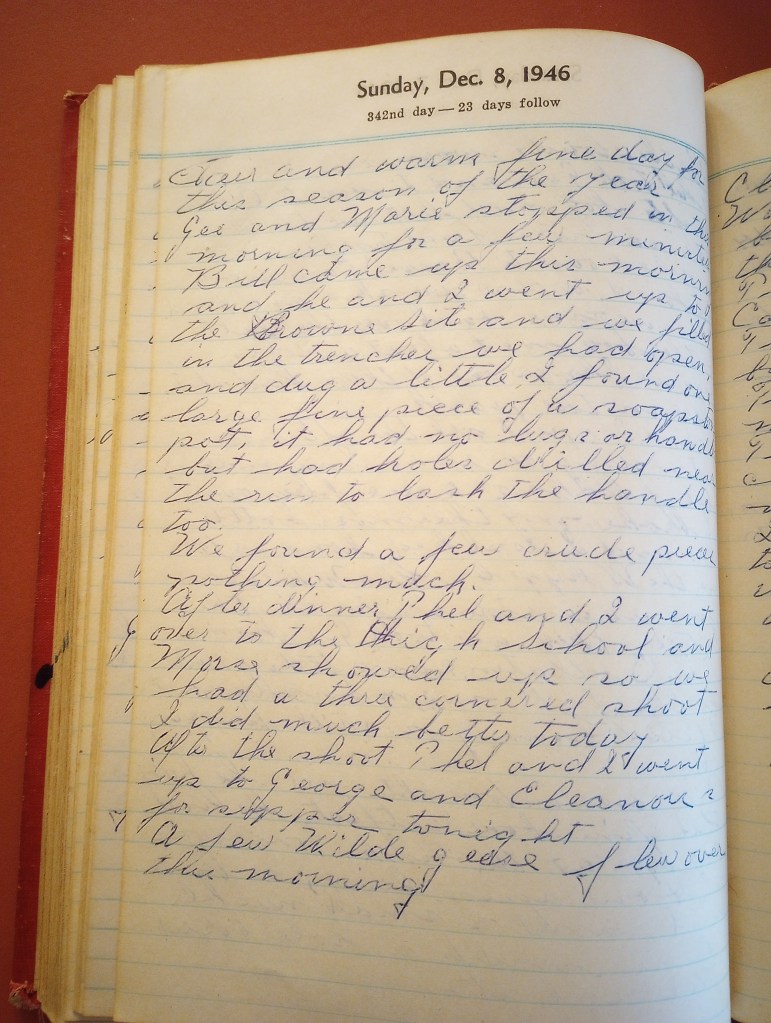 Sunday, Dec. 8, 1946
342nd day — 23 days follow
Clear and warm fine day for
this season of the year.
Gee and Marie stopped in this
morning for a few minutes
Bill came up this mornin
and he and I went up to
the Browne site and we filled
in the trenches we had open,
and dug a little I found one
large fine piece of a soapsto
pot, it had no lugs or handl
but had holes drilled nea
the rim to lash the handle
too.
We found a few crude piece
nothing much.
After dinner Phel and I went
over to the High School and
Morse showed up so we
had a three cornered shoot
I did much better today
After the shoot Phel and I went
up to George and Eleanors
for supper tonight
A few Wilde geese flew over
this morning